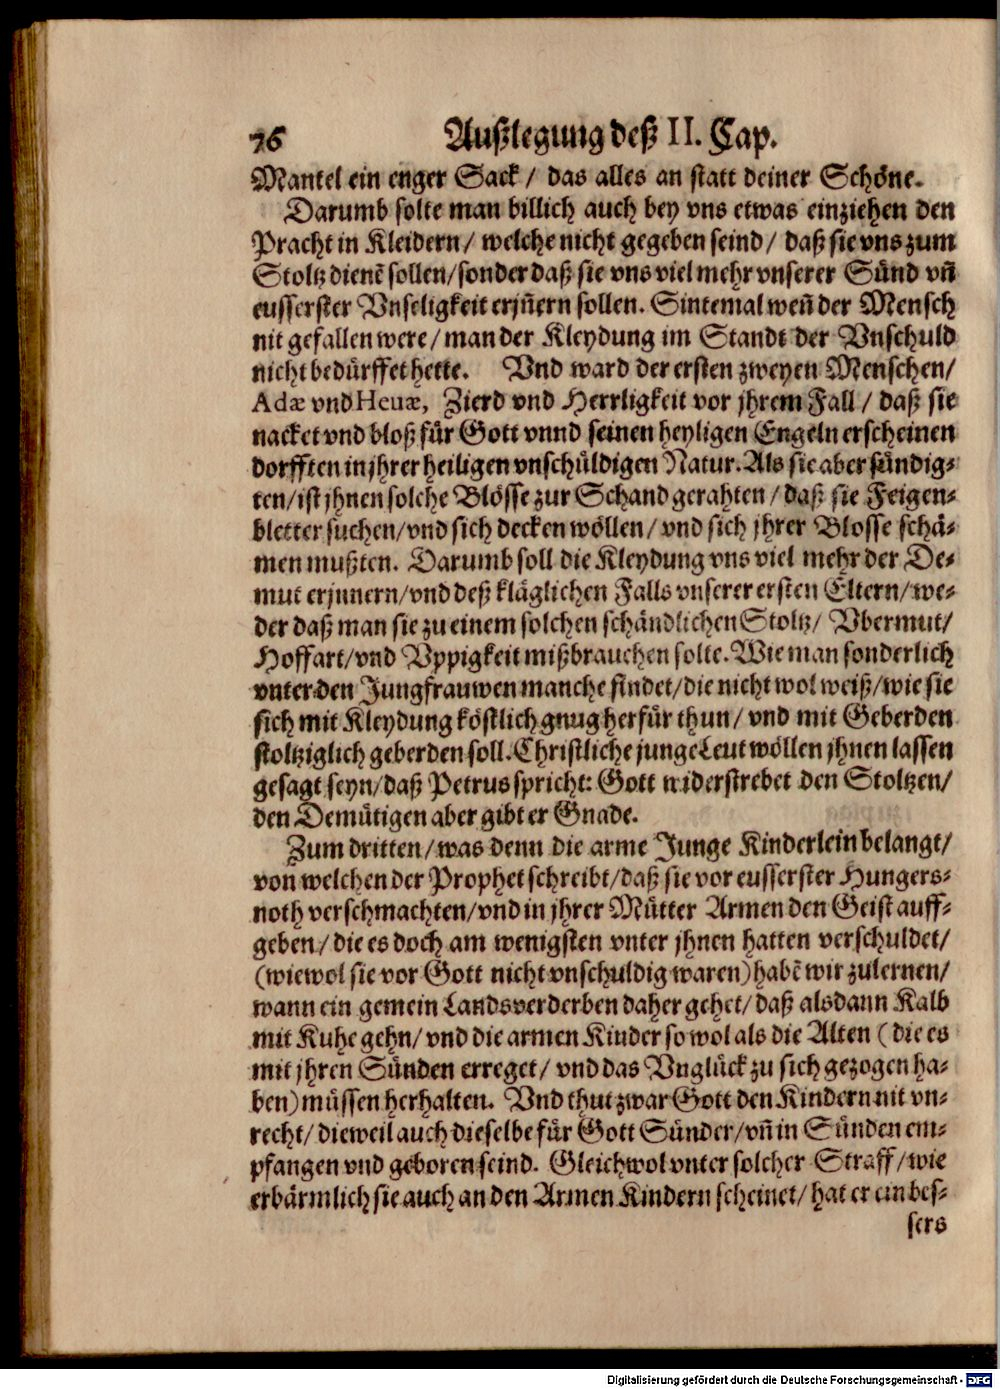 76 Außlegung deß II. Cap.
Mantel ein enger Sack / das alles an statt deiner Schöne.
Darumb solte man billich auch bey vns etwas einziehen den
Pracht in Kleidern / welche nicht gegeben seind / daß sie vns zum
Stoltz dienẽ sollen / sonder daß sie vns viel mehr vnserer Sünd vñ
eusserster Vnseligkeit erjñern sollen. Sintemal weñ der Mensch
nit gefallen were / man der Kleydung im Standt der Vnschuld
nicht bedürffet hette. Vnd ward der ersten zweyen Menschen /
Adæ vnd Heuæ, Zierd vnd Herrligkeit vor jhrem Fall / daß sie
nacket vnd bloß für Gott vnnd seinen heyligen Engeln erscheinen
dorfften in jhrer heiligen vnschüldigen Natur. Als sie aber sündig-
ten / ist jhnen solche Blösse zur Schand gerahten / daß sie Feigen-
bletter suchen / vnd sich decken wöllen / vnd sich jhrer Blosse schä-
men mußten. Darumb soll die Kleydung vns viel mehr der De-
mut erjnnern / vnd deß kläglichen Falls vnserer ersten Eltern / we-
der daß man sie zu einem solchen schändlichen Stoltz / Vbermut /
Hoffart / vnd Vppigkeit mißbrauchen solte. Wie man sonderlich
vnter den Jungfrauwen manche findet / die nicht wol weiß / wie sie
sich mit Kleydung köstlich gnug herfür thun / vnd mit Geberden
stoltziglich geberden soll. Christliche junge Leut wöllen jhnen lassen
gesagt seyn / daß Petrus spricht: Gott widerstrebet den Stoltzen /
den Demütigen aber gibt er Gnade.
Zum dritten / was denn die arme Junge Kinderlein belangt /
von welchen der Prophet schreibt / daß sie vor eusserster Hungers-
noth verschmachten / vnd in jhrer Mütter Armen den Geist auff-
geben / die es doch am wenigsten vnter jhnen hatten verschuldet /
(wiewol sie vor Gott nicht vnschuldig waren) habẽ wir zulernen /
wann ein gemein Landsverderben daher gehet / daß alsdann Kalb
mit Kuhe gehn / vnd die armen Kinder so wol als die Alten (die es
mit jhren Sünden erreget / vnd das Vnglück zu sich gezogen ha-
ben) müssen herhalten. Vnd thut zwar Gott den Kindern nit vn-
recht / dieweil auch dieselbe für Gott Sünder / vñ in Sünden em-
pfangen vnd geboren seind. Gleichwol vnter solcher Straff / wie
erbärmlich sie auch an den Armen Kindern scheinet / hat er ein bes-
sers
Digitalisierung gefördert durch die Deutsche Forschungsgemeinschaft - DFG